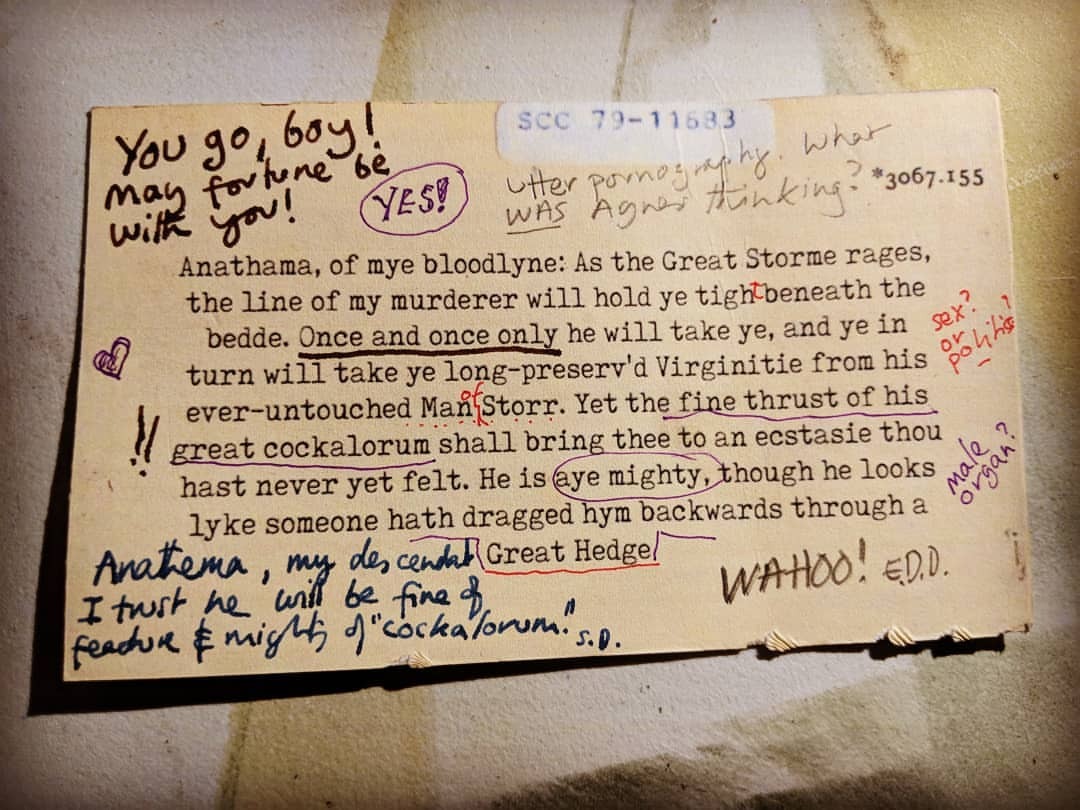 You go, boy!
May fortune be
with you!
YES!
SCC 79-11683
Utter pornography. What
WAS Agnes thinking?
*3067.155
Anathama, of mye bloodlyne: As the Great Storme rages,
the line of my murderer will hold ye tight beneath the
bedde. Once and once only he will take ye, and ye in
turn will take ye long-preserv'd Virginitie from his
ever-untouched Man of Storr. Yet the fine thrust of his
great cockalorum shall bring thee to an ecstasie thou
hast never yet felt. He is aye mighty, though he looks
lyke someone hath dragged hym backwards through a
Great Hedge
sex?
or
politics?
!!
male
organ?
Anathema, my descendat
I trust he will be fine of
feature & mighty of "cockalorum."
S.D.
WAHOO! E.D.D.